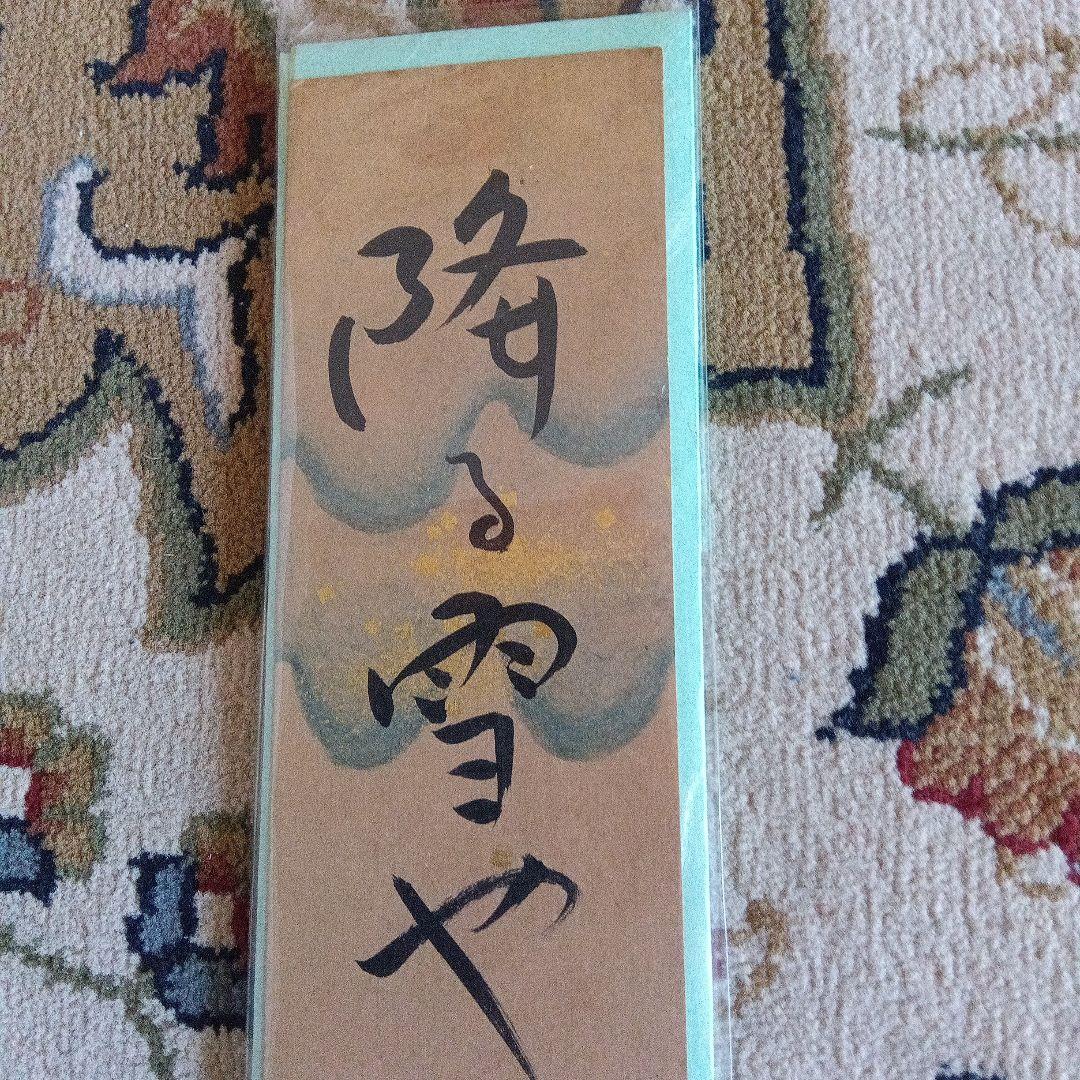 降る雪や